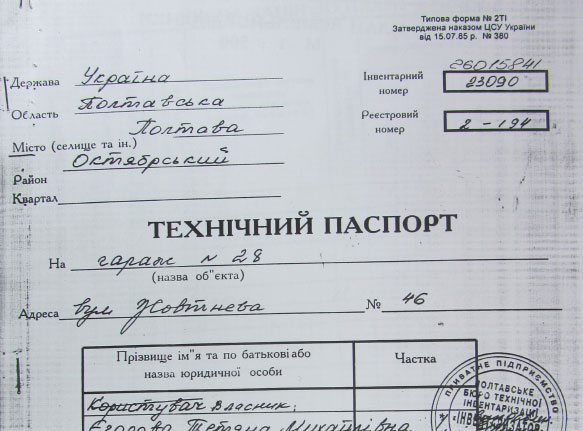 Типова форма № 2ТІ
Затверджена наказом ЦСУ України
від 15.07.85 р. № 380
26015841
Держава Україна
Інвентарний номер 23090
Область Полтавська
Місто (селище та ін.) Полтава
Реєстровий номер 2-194
Район Октябрський
Квартал
ТЕХНІЧНИЙ ПАСПОРТ
На гараж N 28
(назва об"єкта)
Адреса вул Жовтнева № 46
Прізвище ім"я та по батькові або
назва юридичної особи
Частка
Користувач Власник:
Єгорова Тетяна Михайлівна
ПРИВАТНЕ ПІДПРИЄМСТВО
ПОЛТАВСЬКЕ
БЮРО ТЕХНІЧНОЇ
ІНВЕНТАРИЗАЦІЇ